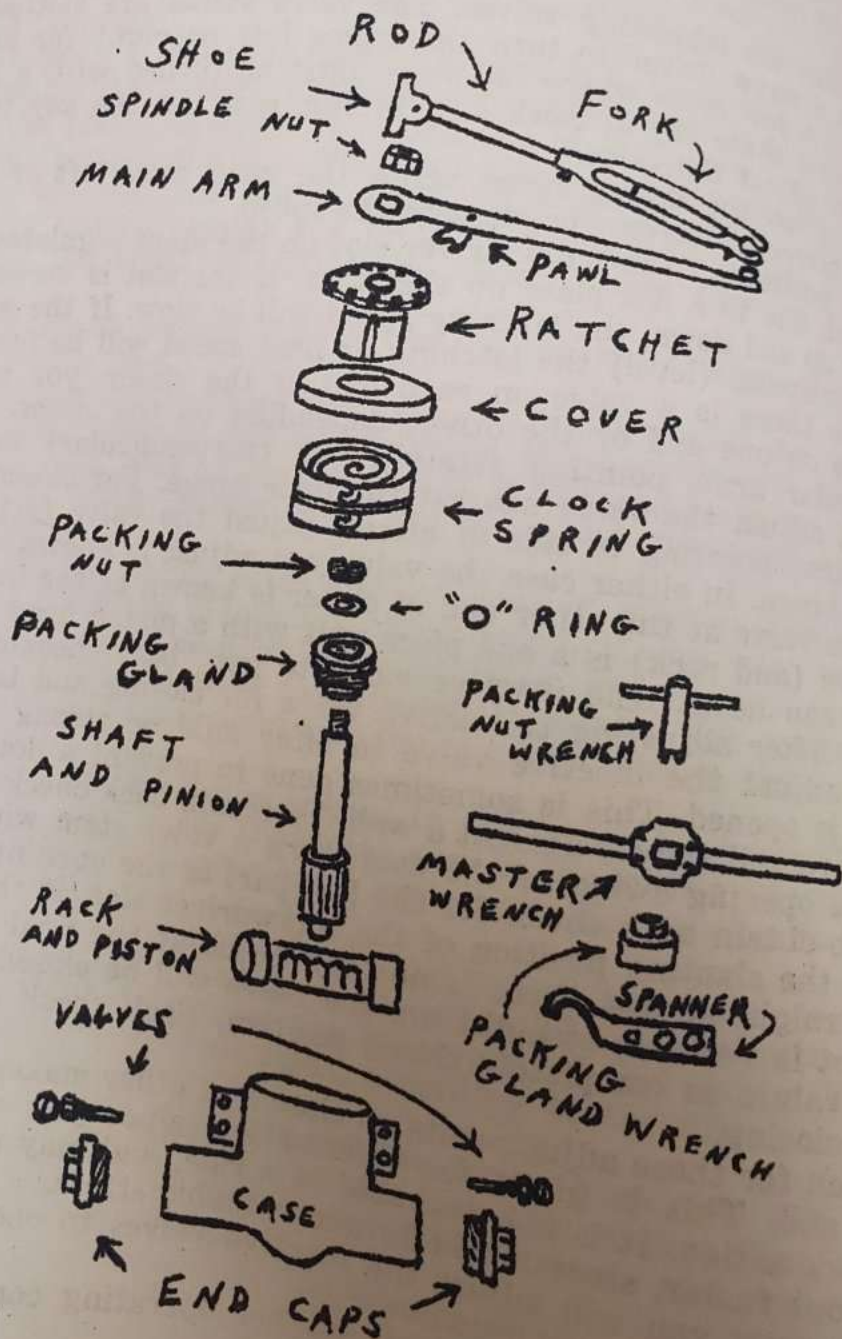 ROD
SHOE
SPINDLE NUT
FORK
MAIN ARM
PAWL
RATCHET
COVER
CLOCK
SPRING
PACKING
NUT
"O" RING
PACKING
GLAND
PACKING
NUT
WRENCH
SHAFT
AND PINION
MASTER
WRENCH
RACK
AND PISTON
SPANNER
PACKING
GLAND WRENCH
VALVES
CASE
END CAPS